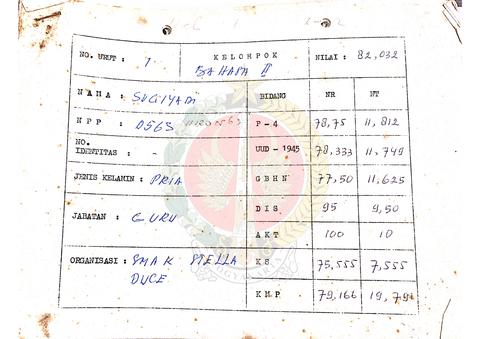 NO. URUT : 1 KELOMPOK NILAI : 82,032
BAHAPA II
NAMA : SUGIYAM BIDANG NR NT
NPP : 0565 P - 4 78,75 11,812
NO. IDENTITAS : UUD - 1945 78,333 11,749
JENIS KELAMIN : PRIA GBHN 77,50 11,625
JABATAN : GURU DIS 95 9,50
AKT 100 10
ORGANISASI : SMAK STELLA KS 75,555 7,555
DUCE KMP 79,166 19,791
YOGYAKARTA